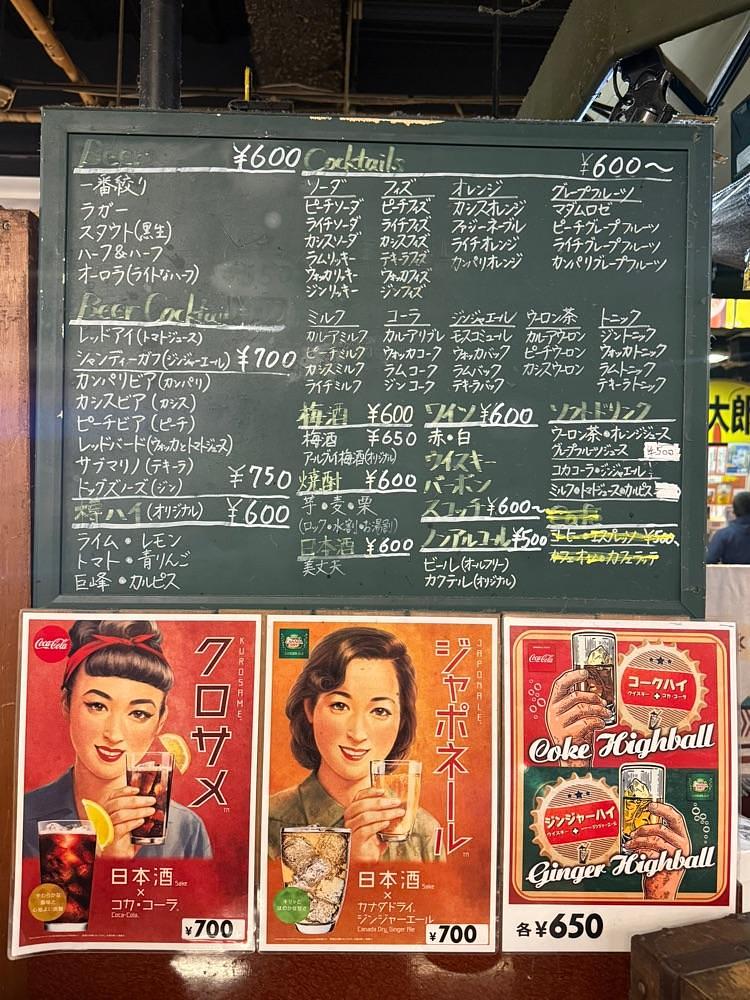 Beer ¥600
一番絞り
ラガー
スタウト(黒生)
ハーフ&ハーフ
オーロラ(ライトなハーフ)
Beer Cocktail
レッドアイ(トマトジュース)
シャンディーガフ(ジンジャーエール) ¥700
カンパリビア(カンパリ)
カシスビア(カシス)
ピーチビア(ピーチ)
レッドバード(ウォッカとトマトジュース)
サブマリノ(テキーラ)
ドッグズノーズ(ジン) ¥750
樽ハイ(オリジナル) ¥600
ライム・レモン
トマト・青りんご
巨峰・カルピス
Cocktails ¥600〜
ソーダ
ピーチソーダ
ライチソーダ
カシスソーダ
ラムリッキー
ウォッカリッキー
ジンリッキー
フィズ
ピーチフィズ
ライチフィズ
カシスフィズ
テキーラフィズ
ウォッカフィズ
ジンフィズ
オレンジ
カシスオレンジ
ファジーネーブル
ライチオレンジ
カンパリオレンジ
グレープフルーツ
マダムロゼ
ピーチグレープフルーツ
ライチグレープフルーツ
カンパリグレープフルーツ
ミルク
カルーアミルク
ピーチミルク
カシスミルク
ライチミルク
コーラ
カルーアリブレ
ウォッカコーク
ラムコーク
ジンコーク
ジンジャエール
モスコミュール
ウォッカバック
ラムバック
テキラバック
ウーロン茶
カルーアウーロン
ピーチウーロン
カシスウーロン
トニック
ジントニック
ウォッカトニック
ラムトニック
テキーラトニック
梅酒 ¥600
梅酒 ¥650
梅酒(オリジナル)
焼酎 ¥600
芋・麦・栗
(ロック・水割・お湯割)
日本酒 ¥600
美丈夫
ワイン ¥600
赤・白
ウイスキー
バーボン
スコッチ ¥600〜
ノンアルコール ¥500
ビール(オールフリー)
カクテル(オリジナル)
ソフトドリンク
ウーロン茶・オレンジジュース
グレープフルーツジュース ¥500
コカコーラ・ジンジャエール
ミルク・トマトジュース・カルピス
Cafe
コーヒー・エスプレッソ ¥500
カフェオレ・カフェラッテ
太郎
Coca-Cola
クロサメ
KUROSAME
TM
やわらかな
酸味と
心地よい炭酸
日本酒 Sake
×
コカ・コーラ
Coca-Cola
¥700
ジャポネール
JAPONALE
TM
キリッと
ほのかな甘さ
日本酒 Sake
×
カナダドライ
ジンジャーエール
Canada Dry Ginger Ale
¥700
Coca-Cola
コークハイ
ウイスキー + コカ・コーラ
Coke Highball
ジンジャーハイ
Ginger Highball
各¥650